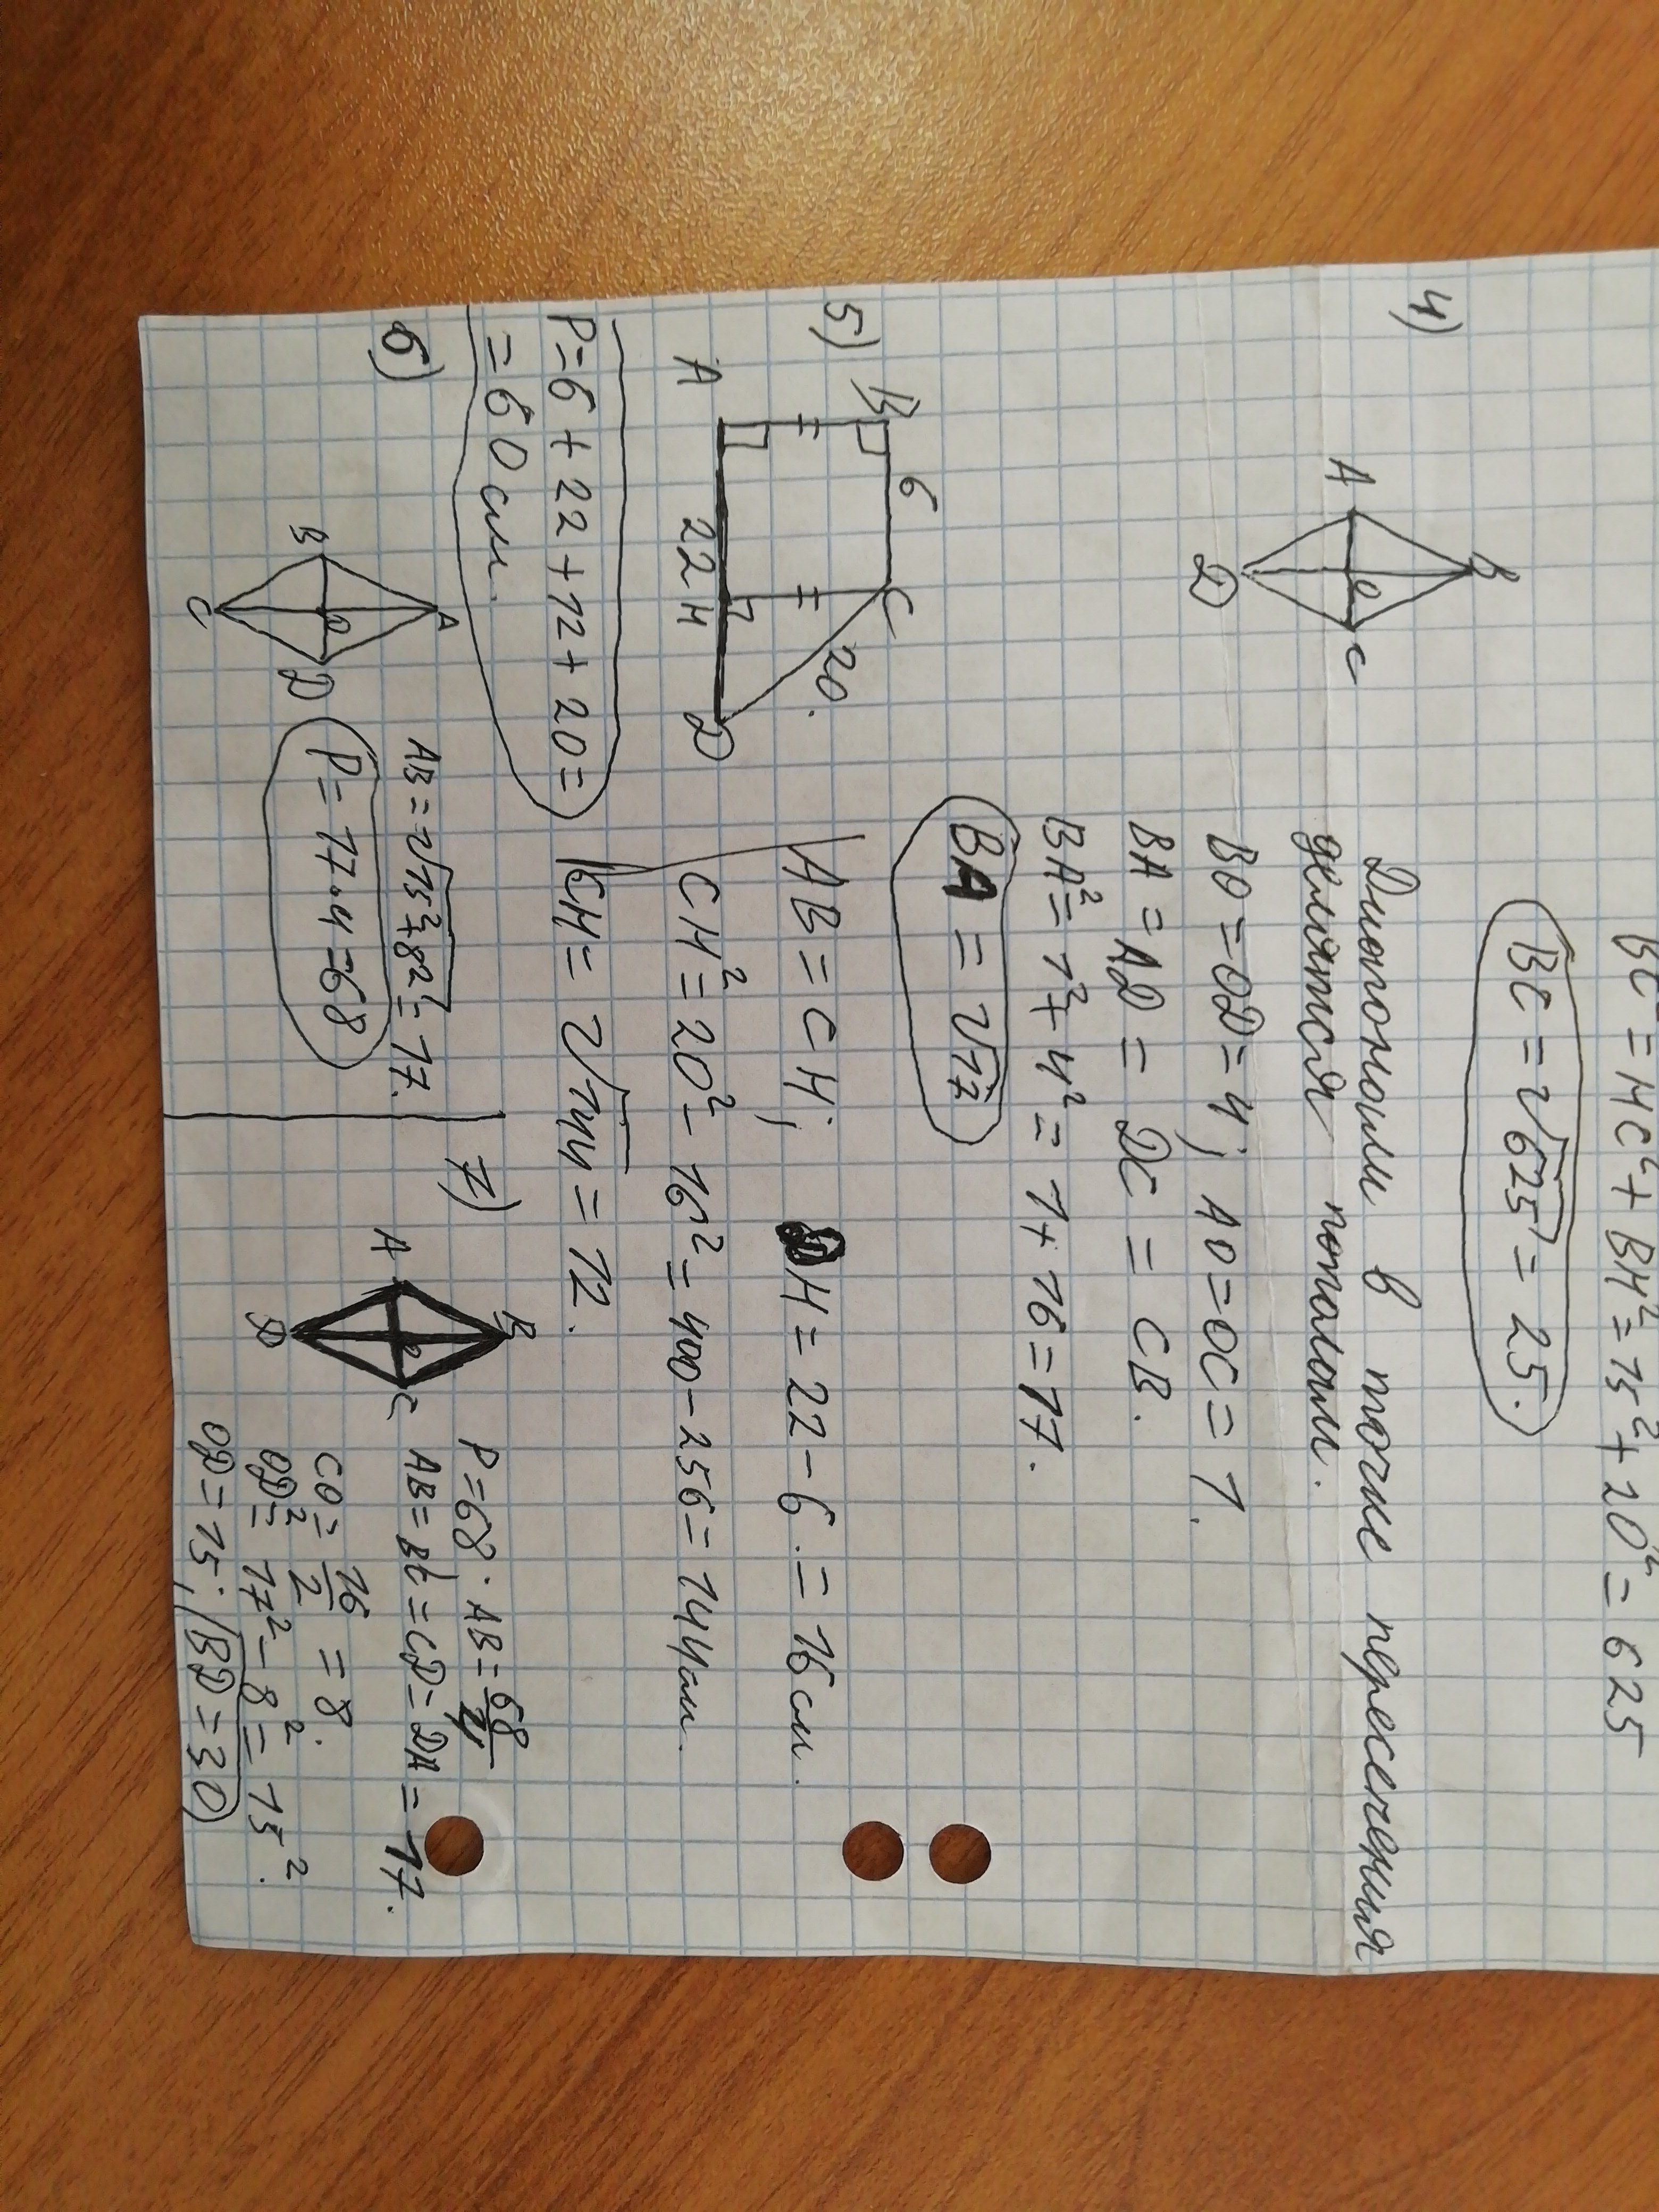 BC² = HC² + BH² = 15² + 20² = 625
BC = √625 = 25.
4)
B
A
O
C
D
Диагонали в точке пересечения
делятся пополам.
BO = OD = 4; AO = OC = 1.
BA = AD = DC = CB.
BA² = 1² + 4² = 1 + 16 = 17.
BA = √17
5)
B 6 C
20.
A 22 H D
AB = CH; DH = 22 - 6 = 16 см.
CH² = 20² - 16² = 400 - 256 = 144 см.
CH = √144 = 12.
P = 6 + 22 + 12 + 20 =
= 60 см.
6)
A
B
O
D
C
AB = √15² + 8² = 17.
P = 17 · 4 = 68
7)
B
A
O
C
D
P = 68. AB = 68/4
AB = BC = CD = DA = 17.
CO = 16/2 = 8.
OD² = 17² - 8² = 15².
OD = 15; BD = 30